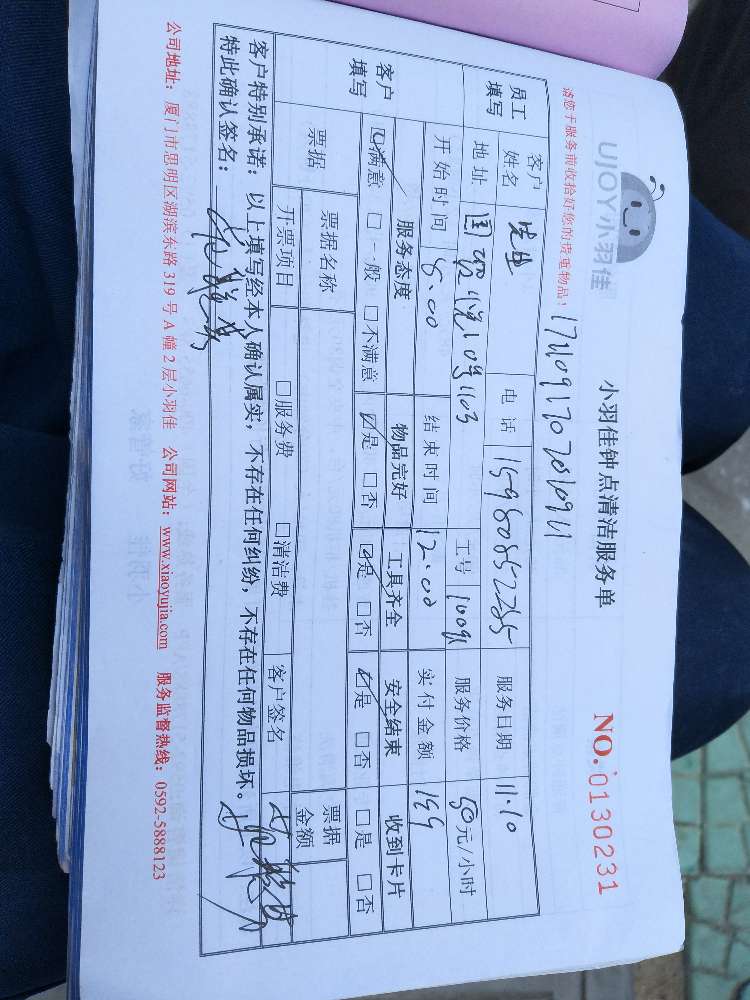 UJOY小羽佳
小羽佳钟点清洁服务单
NO. 0130231
请您于服务前收拾好您的贵重物品!
员工填写
客户姓名 先生 电话 15980852235 服务日期 11.10
地址 国贸 103 工号 服务价格 50元/小时
开始时间 8.00 结束时间 12.00 实付金额 199
客户填写
服务态度 物品完好 工具齐全 安全结束 收到卡片
☑满意 □一般 □不满意 ☑是 □否 ☑是 □否 ☑是 □否 □是 □否
票据 票据名称 票据金额
开票项目 □服务费 □清洁费 客户签名
客户特别承诺:以上填写经本人确认属实,不存在任何纠纷,不存在任何物品损坏。
特此确认签名:
公司地址:厦门市思明区湖滨东路319号A幢2层小羽佳 公司网站:www.xiaoyujia.com 服务监督热线:0592-5888123